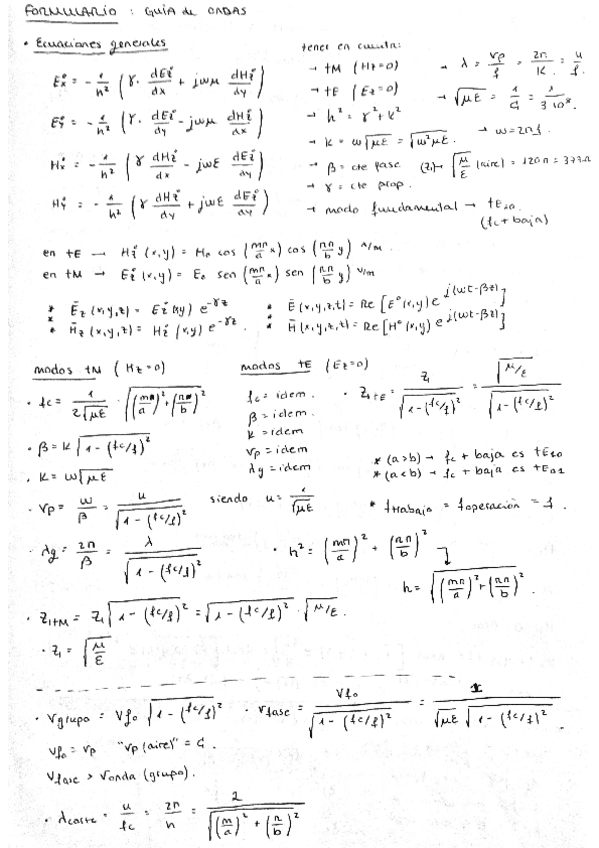 FORMULARIO : GUÍA de ONDAS
• Ecuaciones generales
Ex° = - 1/h² (γ · dEz°/dx + jωμ dHz°/dy)
Ey° = - 1/h² (γ · dEz°/dy - jωμ dHz°/dx)
Hx° = - 1/h² (γ dHz°/dx - jωε dEz°/dy)
Hy° = - 1/h² (γ dHz°/dy + jωε dEz°/dx)
tener en cuenta:
→ tM (Hz=0)
→ tE (Ez=0)
→ h² = γ² + k²
→ k = ω√με = √ω²με
→ β = cte fase
→ γ = cte prop.
→ modo fundamental → tE10
(fc + baja)
→ λ = vp/f = 2π/k = u/f
→ √με = 1/c = 1/3·10⁸
→ ω = 2πf
(Z1) → √μ/ε (aire) = 120π = 377Ω
en tE → Hz° (x,y) = H0 cos (mπ/a x) cos (nπ/b y) A/m
en tM → Ez° (x,y) = E0 sen (mπ/a x) sen (nπ/b y) V/m
* Ēz (x,y,z) = Ez° (x,y) e^-γz
* H̄z (x,y,z) = Hz° (x,y) e^-γz
* Ē (x,y,z,t) = Re [E° (x,y) e^j(ωt-βz)]
* H̄ (x,y,z,t) = Re [H° (x,y) e^j(ωt-βz)]
modos tM (Hz=0)
• fc = 1/2√με · √(mπ/a)² + (nπ/b)²
• β = k √1 - (fc/f)²
• k = ω√με
• vp = ω/β = u/√1 - (fc/f)² siendo u = 1/√με
• λg = 2π/β = λ/√1 - (fc/f)²
• Z1tM = Z1 √1 - (fc/f)² = √1 - (fc/f)² · √μ/ε.
• Z1 = √μ/ε
modos tE (Ez=0)
fc = idem.
β = idem.
k = idem
vp = idem
λg = idem
• Z1tE = Z1/√1 - (fc/f)² = √μ/ε/√1 - (fc/f)²
* (a>b) → fc + baja es tE10
* (a<b) → fc + baja es tE01
* ftrabajo = foperación = f.
• h² = (mπ/a)² + (nπ/b)²
h = √(mπ/a)² + (nπ/b)².
• Vgrupo = Vf0 √1 - (fc/f)² • Vfase = Vf0/√1 - (fc/f)² = 1/√με √1 - (fc/f)²
Vf0 = vp "vp (aire)" = c.
Vfase > Vonda (grupo).
• λcorte = u/fc = 2π/h = 2/√(m/a)² + (n/b)²